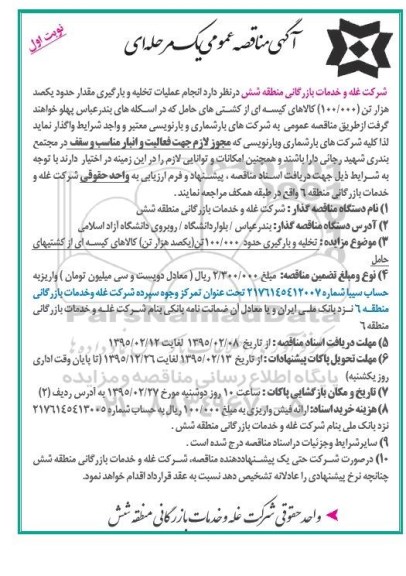 نوبت اول
آگهی مناقصه عمومی یک مرحله‌ای
شرکت غله و خدمات بازرگانی منطقه شش درنظر دارد انجام عملیات تخلیه و بارگیری مقدار حدود یکصد
هزار تن (۱۰۰/۰۰۰) کالاهای کیسه ای از کشتی های حامل که در اسکله های بندرعباس پهلو خواهند
گرفت ازطریق مناقصه عمومی به شرکت های بارشماری و بارنویسی معتبر و واجد شرایط واگذار نماید
لذا کلیه شرکت های بارشماری وبارنویسی که مجوز لازم جهت فعالیت و انبار مناسب و سقف در مجتمع
بندری شهید رجائی دارا باشند و همچنین امکانات و توانایی لازم را در این زمینه در اختیار دارند با توجه
به شرایط ذیل جهت دریافت اسناد مناقصه ، پیشنهاد و فرم ارزیابی به واحد حقوقی شرکت غله و
خدمات بازرگانی منطقه ۶ واقع در طبقه همکف مراجعه نمایند .
۱) نام دستگاه مناقصه گذار : شرکت غله و خدمات بازرگانی منطقه شش
۲) آدرس دستگاه مناقصه گذار: بندرعباس / بلوار دانشگاه / روبروی دانشگاه آزاد اسلامی
۳) موضوع مزایده : تخلیه و بارگیری حدود ۱۰۰/۰۰۰تن(یکصد هزار تن) کالاهای کیسه ای از کشتیهای
حامل
۴) نوع و مبلغ تضمین مناقصه: مبلغ ۲/۳۰۰/۰۰۰ ریال ( معادل دویست و سی میلیون تومان ) واریز به
حساب سیبا شماره ۲۱۷۶۱۴۵۴۱۲۰۰۷ تحت عنوان تمرکز وجوه سپرده شرکت غله وخدمات بازرگانی
منطقه ۶ نزد بانک ملی ایران و یا معادل آن ضمانت نامه بانکی بنام شرکت غله و خدمات بازرگانی
منطقه ۶
۵) مهلت دریافت اسناد مناقصه : از تاریخ ۱۳۹۵/۰۲/۰۸ لغایت ۱۳۹۵/۰۲/۱۲
۶) مهلت تحویل پاکات پیشنهادات : از تاریخ ۱۳۹۵/۰۲/۱۳ لغایت ۱۳۹۵/۱۲/۲۶ (تا پایان وقت اداری
روز یکشنبه)
۷) تاریخ و مکان بازگشایی پاکات : ساعت ۱۰ روز دوشنبه مورخ ۱۳۹۵/۰۲/۲۷ به آدرس ردیف (۲)
۸) هزینه خرید اسناد: ارائه فیش واریزی به مبلغ ۱۰۰/۰۰۰ ریال به حساب شماره ۲۱۷۶۱۴۵۴۱۳۰۰۵
نزد بانک ملی بنام شرکت غله و خدمات بازرگانی منطقه شش .
۹) سایرشرایط وجزئیات دراسناد مناقصه درج شده است .
۱۰) درصورت شرکت حتی یک پیشنهاددهنده مناقصه، شرکت غله و خدمات بازرگانی منطقه شش
چنانچه نرخ پیشنهادی را عادلانه تشخیص دهد نسبت به عقد قرارداد اقدام خواهد نمود.
واحد حقوقی شرکت غله و خدمات بازرگانی منطقه شش